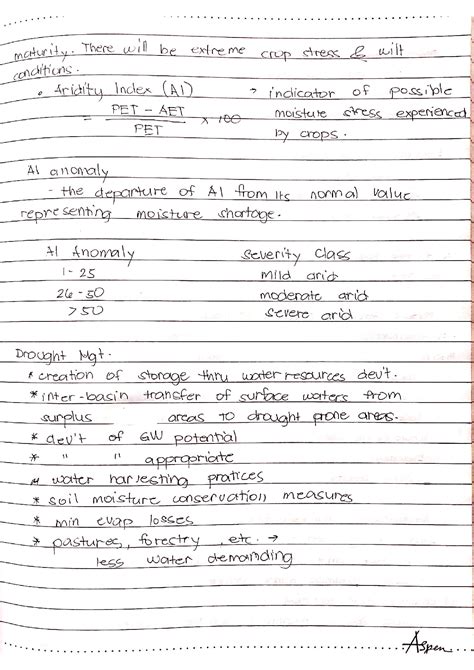 maturity. There will be extreme crop stress & wilt
conditions.
• Aridity Index (AI) → indicator of possible
= PET - AET / PET x 100 moisture stress experienced
by crops.
AI anomaly
- the departure of AI from its normal value
representing moisture shortage.
AI Anomaly Severity Class
1-25 mild arid
26-50 moderate arid
>50 severe arid
Drought Mgt.
* creation of storage thru water resources dev't.
* inter-basin transfer of surface waters from
surplus areas to drought prone areas.
* dev't of GW potential
* " " appropriate
* water harvesting pratices
* soil moisture conservation measures
* min evap losses
* pastures, forestry, etc. →
less water demanding
Aspen